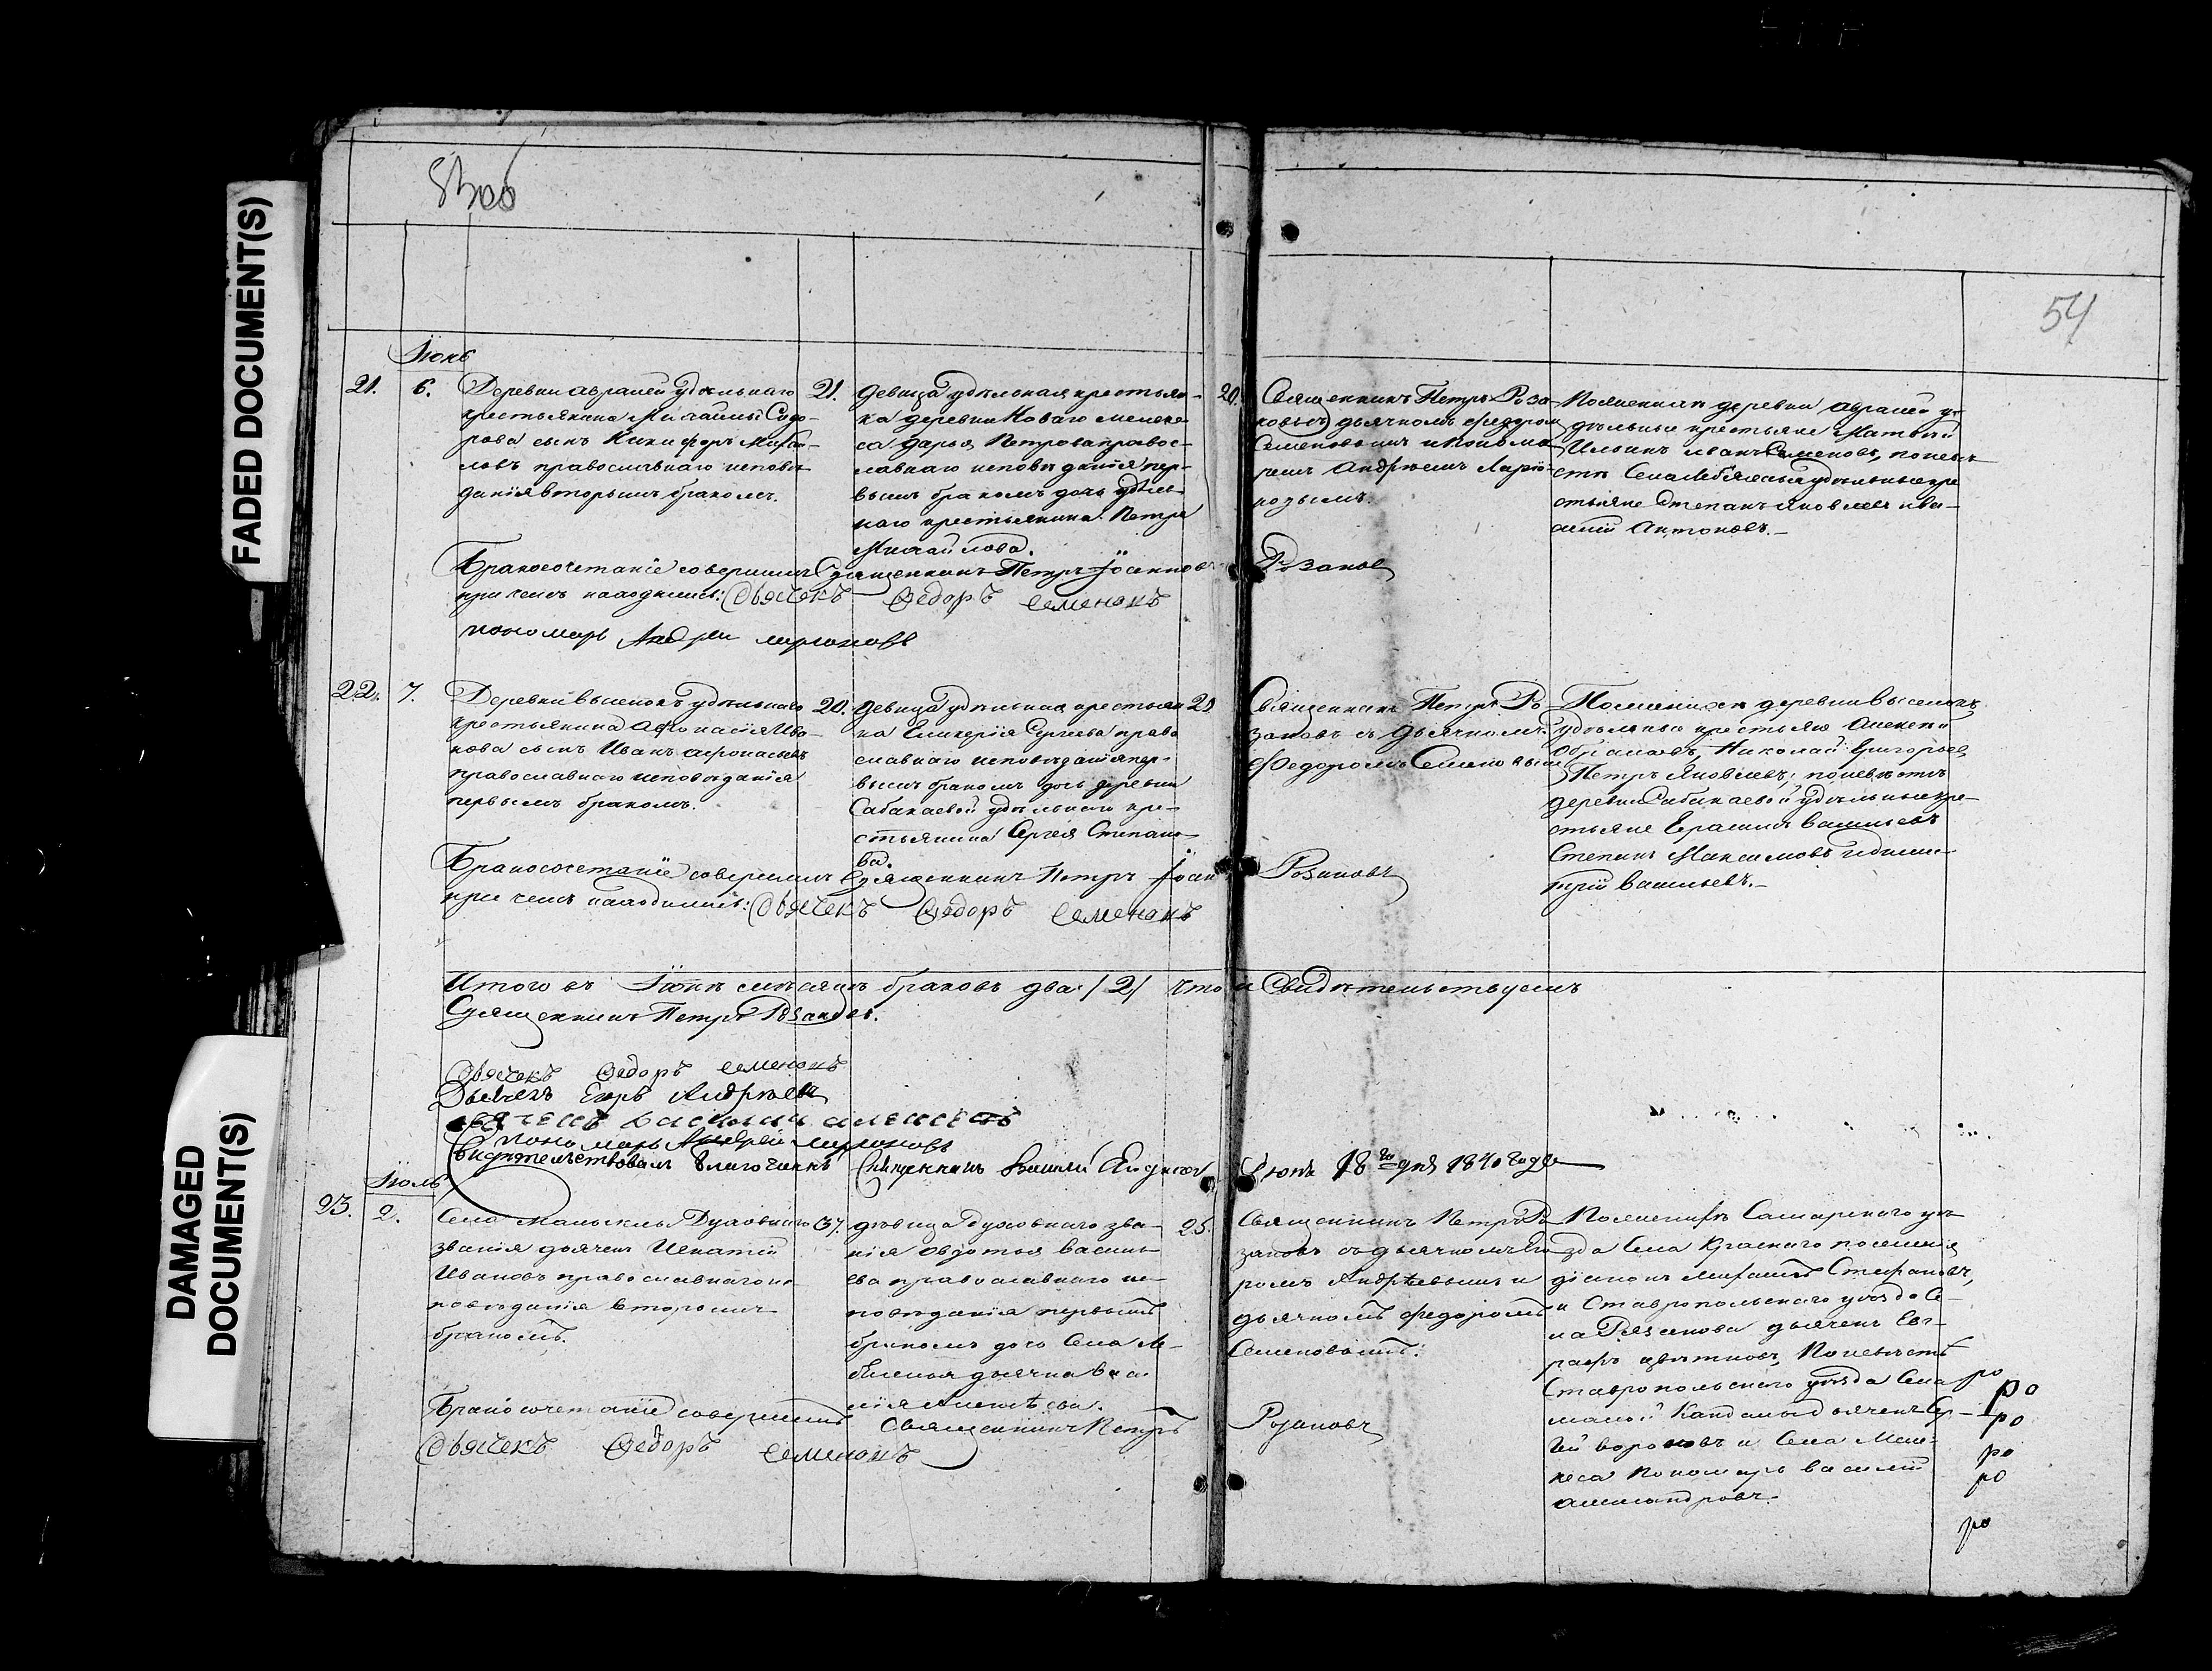 FADED DOCUMENT(S)
DAMAGED
DOCUMENT(S)
53об
54
Іюнь
21. 6.
Деревни Авралей удѣльнаго
крестьянина Михайлы Сидо-
рова сынъ Никифоръ Михай-
ловъ православнаго исповѣ-
данія вторымъ бракомъ.
21.
девица удѣльная крестьян-
ка деревни Новаго Мелеке-
са Дарья Петрова правос-
лавнаго исповѣданія пер-
вымъ бракомъ дочь удѣль-
наго крестьянина Петра
Михайлова.
20.
Священникъ Петръ Роза-
новъ съ дьячкомъ Федором
Семеновымъ и понома-
ремъ Андрѣемъ
По женихѣ деревни Авралей у-
дѣльные крестьяне Матвей
Ильинъ Иванъ Семеновъ, по невѣ-
стѣ Села удѣльные кре
стьяне Степанъ Яковлевъ и Ва-
силій Антоновъ.
Бракосочетаніе совершилъ Священникъ Петръ Іоанновъ Розановъ
при чемъ находились: Дьячекъ Федоръ Семеновъ
пономарь Андрей
22. 7.
Деревни Выселокъ удѣльнаго
крестьянина Афонасія Ива-
нова сынъ Иванъ Афонасьевъ
православнаго исповѣданія
первымъ бракомъ.
20.
девица удѣльная крестьян
ка Гликерія Сергеева право
славнаго исповѣданія пер-
вымъ бракомъ дочь деревни
Сабакаевой удѣльнаго кре-
стьянина Сергея Степано-
ва.
20
Священникъ Петръ Ро-
зановъ съ Дьячкомъ
Федоромъ Семеновым
По женихѣ деревни Выселокъ
удѣльные крестьяне Алексей
Николай Григорьевъ
Петръ Яковлевъ; по невѣстѣ
деревни Сабакаевой удѣльные кре-
стьяне Герасимъ Васильевъ
Степанъ Максимовъ и Дими-
трій Васильевъ.
Бракосочетаніе совершилъ Священникъ Петръ Іоан Розановъ
при чемъ находились: Дьячекъ Федоръ Семеновъ
Итого въ Іюнѣ мѣсяцѣ браковъ два /2/ что и свидѣтельствуемъ
Священникъ Петръ Розановъ.
Дьячекъ Федоръ Семеновъ
Дьячекъ Егоръ Андрѣевъ
пономарь Андрей
Свидѣтельствовалъ Благочинный Священникъ Василій Іюня 18го дня 1840 года
Іюль
23. 2.
Села Малыклы Духовнаго
званія дьячекъ Игнатій
Ивановъ православнаго ис-
повѣданія вторымъ
бракомъ.
37.
дѣвица духовнаго зва-
нія Овдотья Василь-
ева православнаго ис-
повѣданія первымъ
бракомъ дочь Села
дьячка Васи
лія Алексѣева.
25.
Священникъ Петръ Ро
зановъ съ дьячкомъ Его
ромъ Андрѣевымъ и
дьячкомъ Федоромъ
Семеновымъ.
По женихѣ Самарского уѣ
зда Села Краснаго поселенія
діаконъ Михаилъ Стефановъ,
и Ставропольскаго уѣзда Се-
ла Рязанова дьячекъ Евг-
рафъ Цвѣтковъ, По невѣстѣ
Ставропольскаго уѣзда Села
малой Кандалы дьячекъ Сер-
гей Вороновъ и Села Меле-
кеса Пономарь Василій
Александровъ.
Бракосочетаніе совершилъ Священникъ Петръ Розановъ
Дьячекъ Федоръ Семеновъ
ро
ро
ро
ро
ро
ро